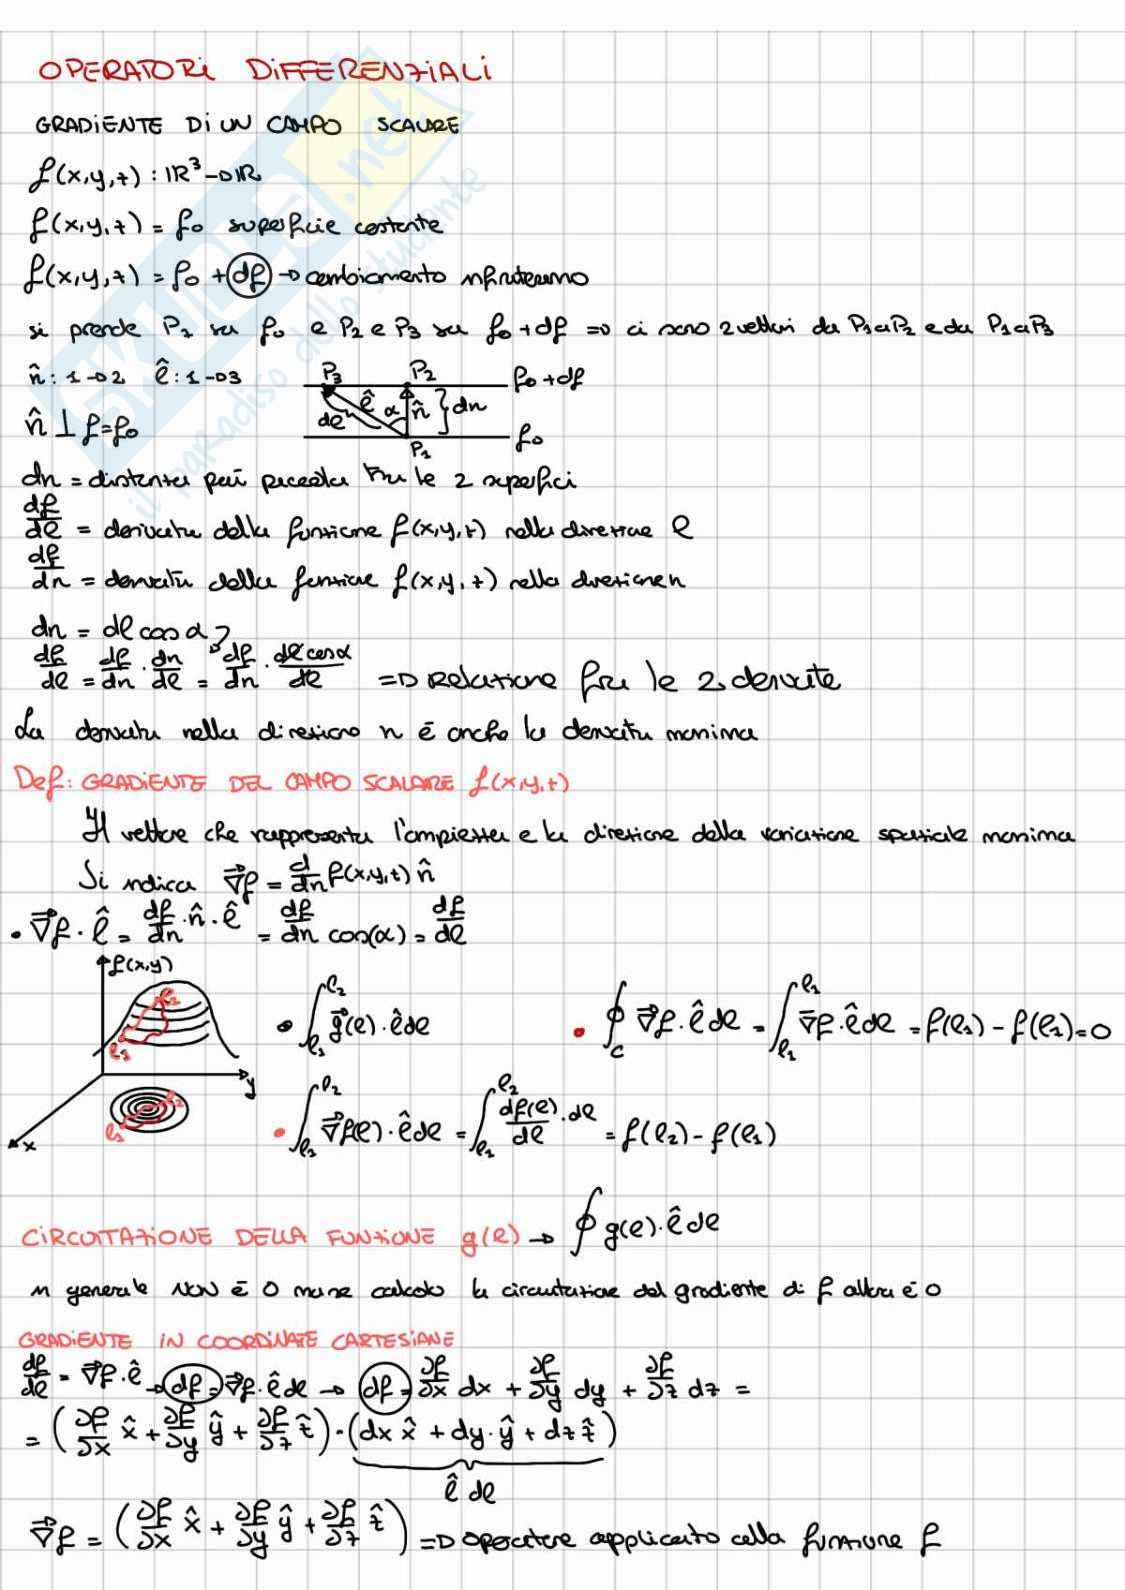 OPERATORI DIFFERENZIALI
GRADIENTE DI UN CAMPO SCALARE
f(x,y,z) : ℝ³ → ℝ
f(x,y,z) = f₀ superficie costante
f(x,y,z) = f₀ + df → cambiamento infinitesimo
si prende P₁ su f₀ e P₂ e P₃ su f₀+df ⇒ ci sono 2 vettori da P₁ a P₂ e da P₁ a P₃
n̂ : 1→2 ê : 1→3
P₃ P₂ f₀+df
n̂ ⊥ f=f₀
dℓ ê α n̂ dn
P₁ f₀
dn = distanza più piccola tra le 2 superfici
df/dℓ = derivata della funzione f(x,y,z) nella direzione ℓ
df/dn = derivata della funzione f(x,y,z) nella direzione n
dn = dℓ cos α
df/dℓ = df/dn · dn/dℓ = df/dn · dℓ cos α/dℓ ⇒ Relazione fra le 2 derivate
La derivata nella direzione n è anche la derivata massima
Def: GRADIENTE DEL CAMPO SCALARE f(x,y,z)
Il vettore che rappresenta l'ampiezza e la direzione della variazione spaziale massima
Si indica ∇⃗f = d/dn f(x,y,z) n̂
• ∇⃗f · ℓ̂ = df/dn · n̂ · ℓ̂ = df/dn cos(α) = df/dℓ
f(x,y)
ℓ₂
ℓ₁
• ∫_ℓ₁^ℓ₂ g⃗(ℓ) · ℓ̂ dℓ
• ∮_C ∇⃗f · ℓ̂ dℓ = ∫_ℓ₁^ℓ₁ ∇⃗f · ℓ̂ dℓ = f(ℓ₁) - f(ℓ₁) = 0
y
ℓ₂
ℓ₁
x
• ∫_ℓ₁^ℓ₂ ∇⃗f(ℓ) · ℓ̂ dℓ = ∫_ℓ₁^ℓ₂ df(ℓ)/dℓ · dℓ = f(ℓ₂) - f(ℓ₁)
CIRCUITAZIONE DELLA FUNZIONE g(ℓ) → ∮ g(ℓ) · ℓ̂ dℓ
in generale NON è 0 ma se calcolo la circuitazione del gradiente di f allora è 0
GRADIENTE IN COORDINATE CARTESIANE
df/dℓ = ∇⃗f · ℓ̂ → df = ∇⃗f · ℓ̂ dℓ → df = ∂f/∂x dx + ∂f/∂y dy + ∂f/∂z dz =
= (∂f/∂x x̂ + ∂f/∂y ŷ + ∂f/∂z ẑ) · (dx x̂ + dy · ŷ + dz ẑ)
ℓ̂ dℓ
∇⃗f = (∂f/∂x x̂ + ∂f/∂y ŷ + ∂f/∂z ẑ) ⇒ operatore applicato alla funzione f
SKUOLA.net
il paradiso dello studente